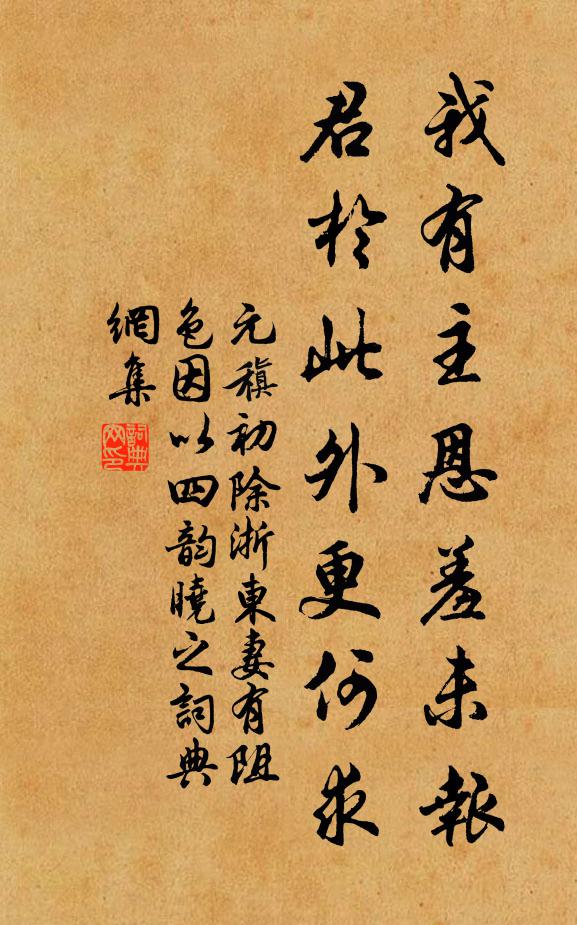 我有主恩羞未報
君於此外更何求
元稹初除浙東妻有阻
色因以四韵曉之詞典
網集
詞典
网印